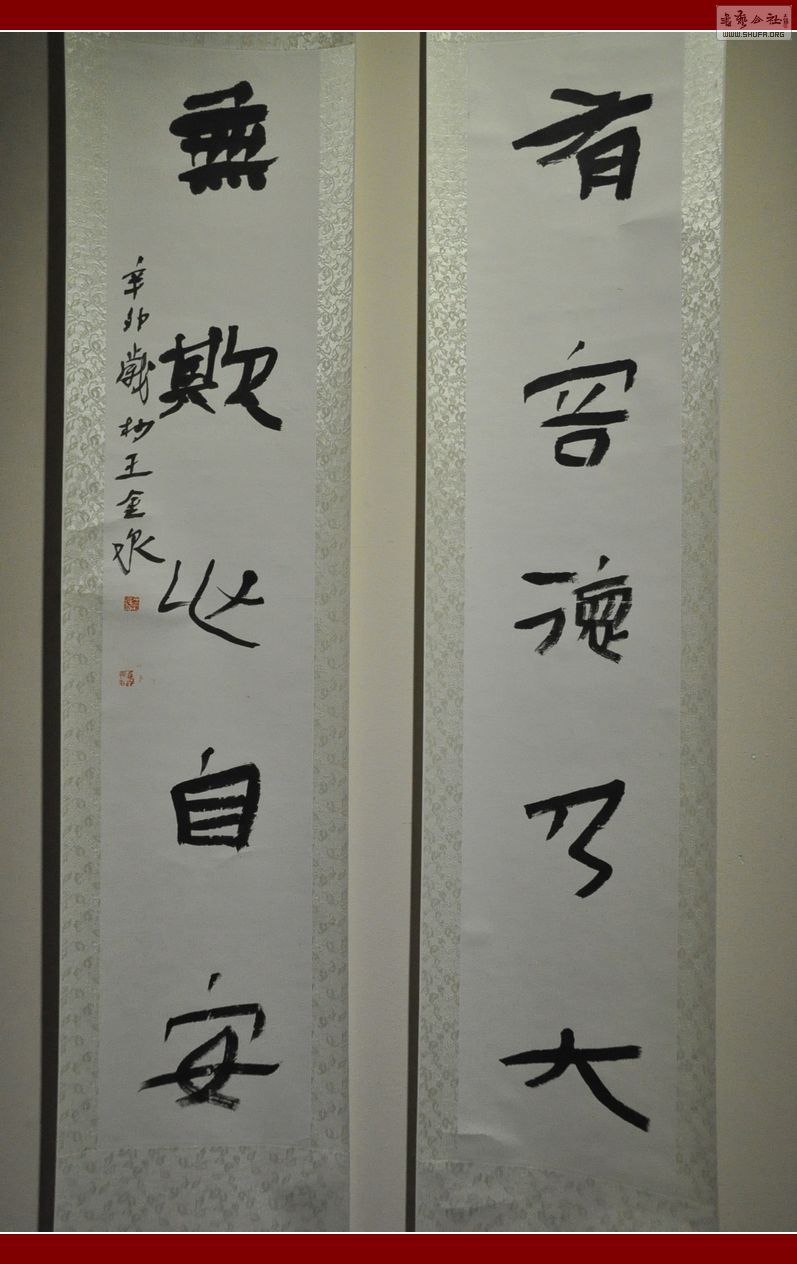 有容德乃大
無欺心自安
辛卯歲杪王金泉
WWW.SHUFA.ORG